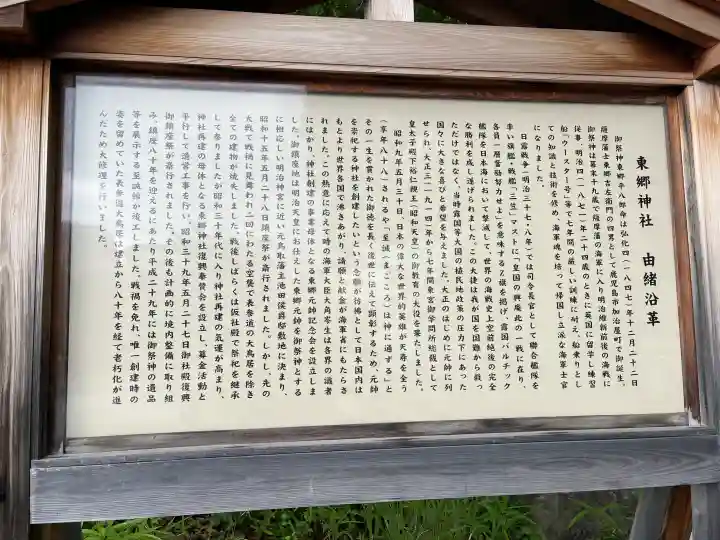 東郷神社　由緒沿革
御祭神東郷平八郎命は弘化四（一八四七）年十二月二十二日
薩摩藩士東郷吉左衛門の四男として鹿児島市加治屋町で御誕生、
御祭神は幕末十九歳で薩摩藩の海軍に入り明治維新前後の海戦に
従事、明治四（一八七一）年二十四歳のときに英国に留学し練習
船「ウースター号」等で七年間の厳しい訓練に耐え、船乗りとし
ての知識と技術を修め、海軍魂を培って帰国し立派な海軍士官
になりました。
日露戦争（明治三十七・八年）では司令長官として聯合艦隊を
率い旗艦・戦艦「三笠」マストに「皇国の興廃此の一戦に在り、
各員一層奮励努力せよ」を意味するＺ旗を掲げ、露国バルチック
艦隊を日本海において撃滅して、世界の海戦史上空前絶後の完全
な勝利を成し遂げられました。この大捷は我が国を国難から救っ
ただけではなく、当時露国等大国の植民地政策の圧力下にあった
国々に大きな喜びと希望を与えました。大正のはじめに元帥に列
せられ、大正三（一九一四）年から七年間東宮御学問所総裁として
皇太子殿下裕仁親王（昭和天皇）の御教育の大役を果たしました。
昭和九年五月三十日、日本の偉大な世界的英雄が天寿を全う
（享年八十八）されるや「至誠（まごころ）は神に通ずる」と
その一生を貫かれた御徳を長く後世に伝えて顕彰するため、元帥
を崇祀する神社を創建したいという念願が彷彿として日本国内は
もとより世界各国で沸きあがり、請願と献金が海軍省にもたらさ
れました。この熱意に応えて時の海軍大臣大角岑生は各界の識者
にはかり、神社創建の事業母体となる東郷元帥記念会を設立しま
した。御鎮座地は明治天皇にお仕えした東郷元帥を御祭神とする
に相応しい明治神宮に近い元鳥取藩主池田侯爵邸敷地に決まり、
昭和十五年五月二十八日鎮座祭が斎行されました。しかし、先の
大戦で戦禍に見舞われ二回にわたる空襲で表参道の大鳥居を除き
全ての建物が焼失しました。戦後しばらくは仮社殿で祭祀を継承
して参りましたが昭和三十年代に入り神社再建の気運が高まり、
神社再建の母体となる東郷神社復興奉賛会を設立し、募金活動と
平行して造営工事を行い、昭和三十九年五月二十七日御社殿復興
御鎮座祭が斎行されました。その後も計画的に境内整備に取り組
み、鎮座八十年を迎えるにあたり平成二十九年には御祭神の遺品
等を展示する至誠館が竣工しました。戦禍を免れ、唯一創建時の
姿を留めていた表参道大鳥居は建立から八十年を経て老朽化が進
んだため大修理を行いました。